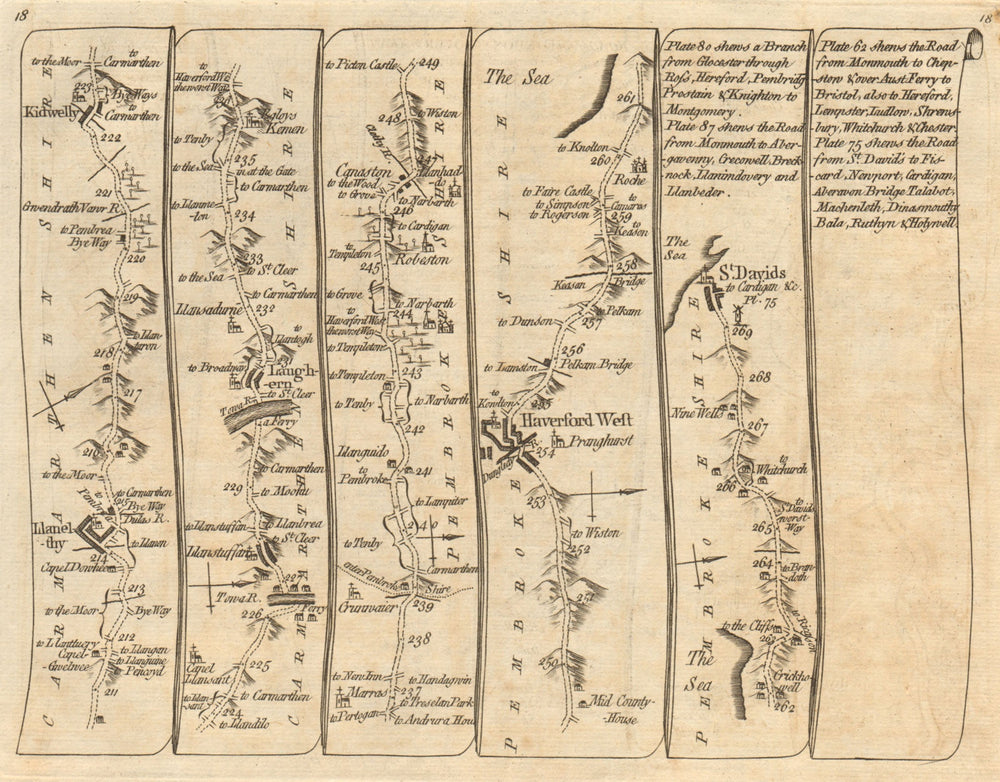 18
18
to the Moor
to Carmarthen
223
Bye Ways
to
Carmarthen
Kidwelly
222
221
Gwendrath Vawr R.
to Pembrea
Bye Way
220
219
to Llan
218
217
216
to the Moor
to
Pembre
to Carmarthen
215
Bye Way
Dulas R.
Llanel-
-thy
to Llanon
214
Capel Dowhee
213
to the Moor
Bye Way
212
to Llanttuery
Capel-
to Llangan
Gwelwee
to Llangune
Pencoyd
211
CARMARTHENSHIRE
to
Haverford We
the worst Way
Egloys
Kemen
to Tenby
235
to the Sea
in at the Gate
to Carmarthen
to Llannte-
ton
234
233
to St. Cleer
to the Sea
to Carmarthen
232
Llansadurne
to
Llantogh
to Broadway
Laugh-
-ern
to St. Cleer
Towa R.
a Ferry
to Carmarthen
229
to Mooku
to Llanstuffan
to Llanbrea
to St. Cleer
Llanstuffan
227
Towa R.
Ferry
226
225
Capel
Llansant
to Llan
sant
to Carmarthen
224
to Llandilo
CARMARTHENSHIRE
to Picton Castle
249
to Wiston
248
Clethy R.
247
Canaston
to the Wood
Llanhad
to Grove
to Narbarth
246
to Cardigan
to
Templeton
Robeston
245
to Grove
to Narbarth
to
Haverford West
the worst Way
244
to Templeton
to Templeton
243
to Narbarth
to Tenby
242
Llanguido
to
Pembroke
241
to Lampiter
240
to Tenby
Carmarthen
enter Pembroke
Shire
Crunwaier
239
238
to New Inn
to Handagwin
Marras
237
to Treselan Park
to Pertogan
to Andrura Hou
PEMBROKESHIRE
The Sea
261
to Knolton
260
Roche
to Faire Castle
to Simpson
to Camarus
to Rogerson
259
to
Keason
258
Keason
Bridge
to Pelkam
257
to Dunson
256
to Lamston
Pelkam Bridge
to
Knolton
255
Haverford West
Pranghurst
254
Dungledy R.
253
to Wiston
252
251
250
Mid County-
House
PEMBROKESHIRE
Plate 80 shews a Branch
from Glocester through
Ross, Hereford, Pembridg
Prestain & Knighton to
Montgomery.
Plate 87 shews the Road
from Monmouth to Aber-
gavenny, Crecowell, Breck-
nock, Llanimdovery and
Llanbeder.
The
Sea
St. Davids
to Cardigan &c.
Pl. 75
269
268
Nine Wells
267
to
Whitchurch
266
to
St. Davids
worst
Way
265
264
to Bran-
doth
to the Cliffs
to Rickson
263
The
Sea
Crickho-
well
262
PEMBROKESHIRE
Plate 62 shews the Road
from Monmouth to Chep-
stow & over Aust Ferry to
Bristol, also to Hereford,
Lempster, Ludlow, Shrews-
bury, Whitchurch & Chester.
Plate 75 shews the Road
from St. Davids to Fis-
card, Newport, Cardigan,
Aberavon Bridge, Talabot,
Machenleth, Dinasmouthy
Bala, Ruthyn & Holywell.